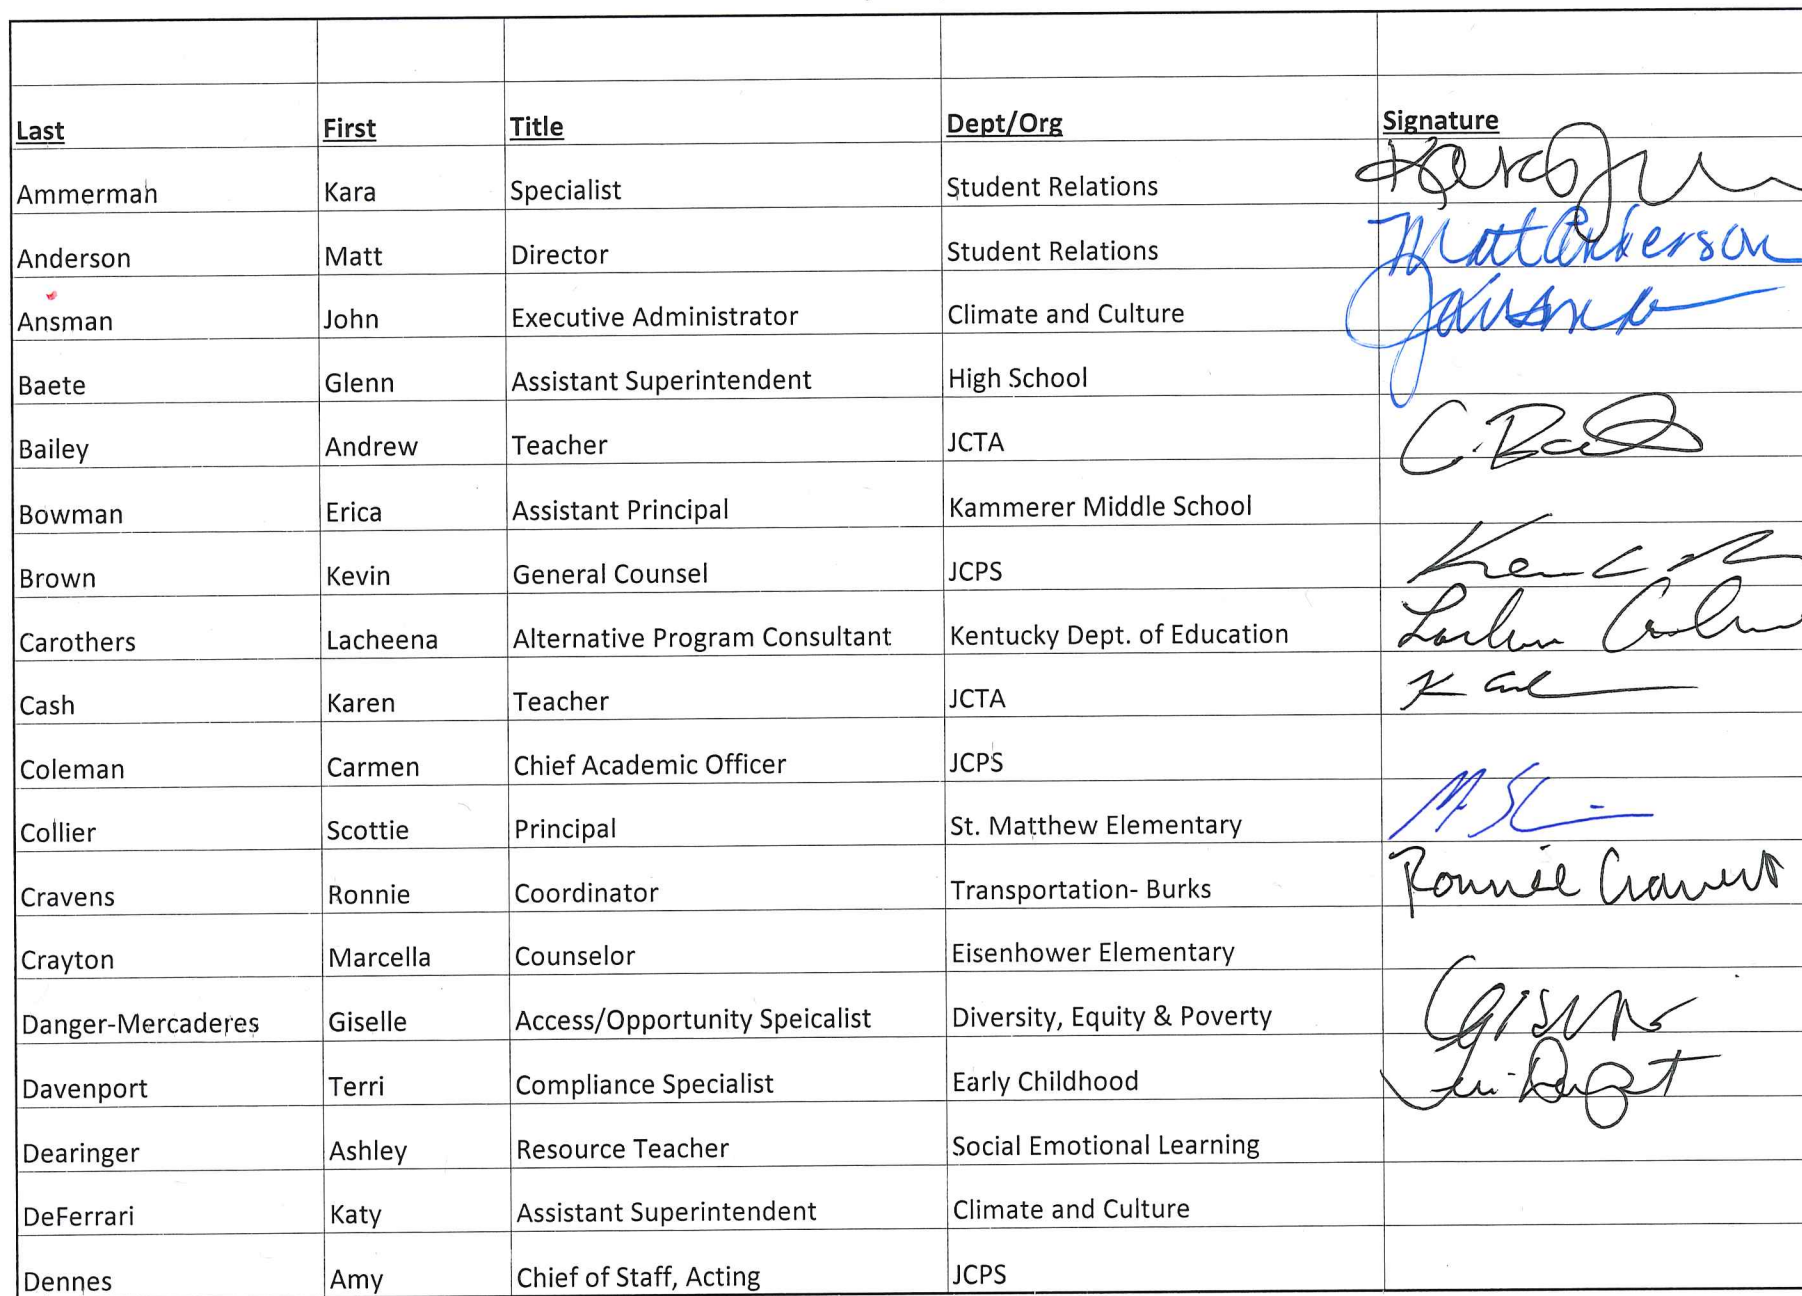 Last First Title Dept/Org Signature
Ammerman Kara Specialist Student Relations
Anderson Matt Director Student Relations Matt Anderson
Ansman John Executive Administrator Climate and Culture
Baete Glenn Assistant Superintendent High School
Bailey Andrew Teacher JCTA
Bowman Erica Assistant Principal Kammerer Middle School
Brown Kevin General Counsel JCPS
Carothers Lacheena Alternative Program Consultant Kentucky Dept. of Education
Cash Karen Teacher JCTA
Coleman Carmen Chief Academic Officer JCPS
Collier Scottie Principal St. Matthew Elementary
Cravens Ronnie Coordinator Transportation- Burks Ronnie Cravens
Crayton Marcella Counselor Eisenhower Elementary
Danger-Mercaderes Giselle Access/Opportunity Speicalist Diversity, Equity & Poverty
Davenport Terri Compliance Specialist Early Childhood
Dearinger Ashley Resource Teacher Social Emotional Learning
DeFerrari Katy Assistant Superintendent Climate and Culture
Dennes Amy Chief of Staff, Acting JCPS